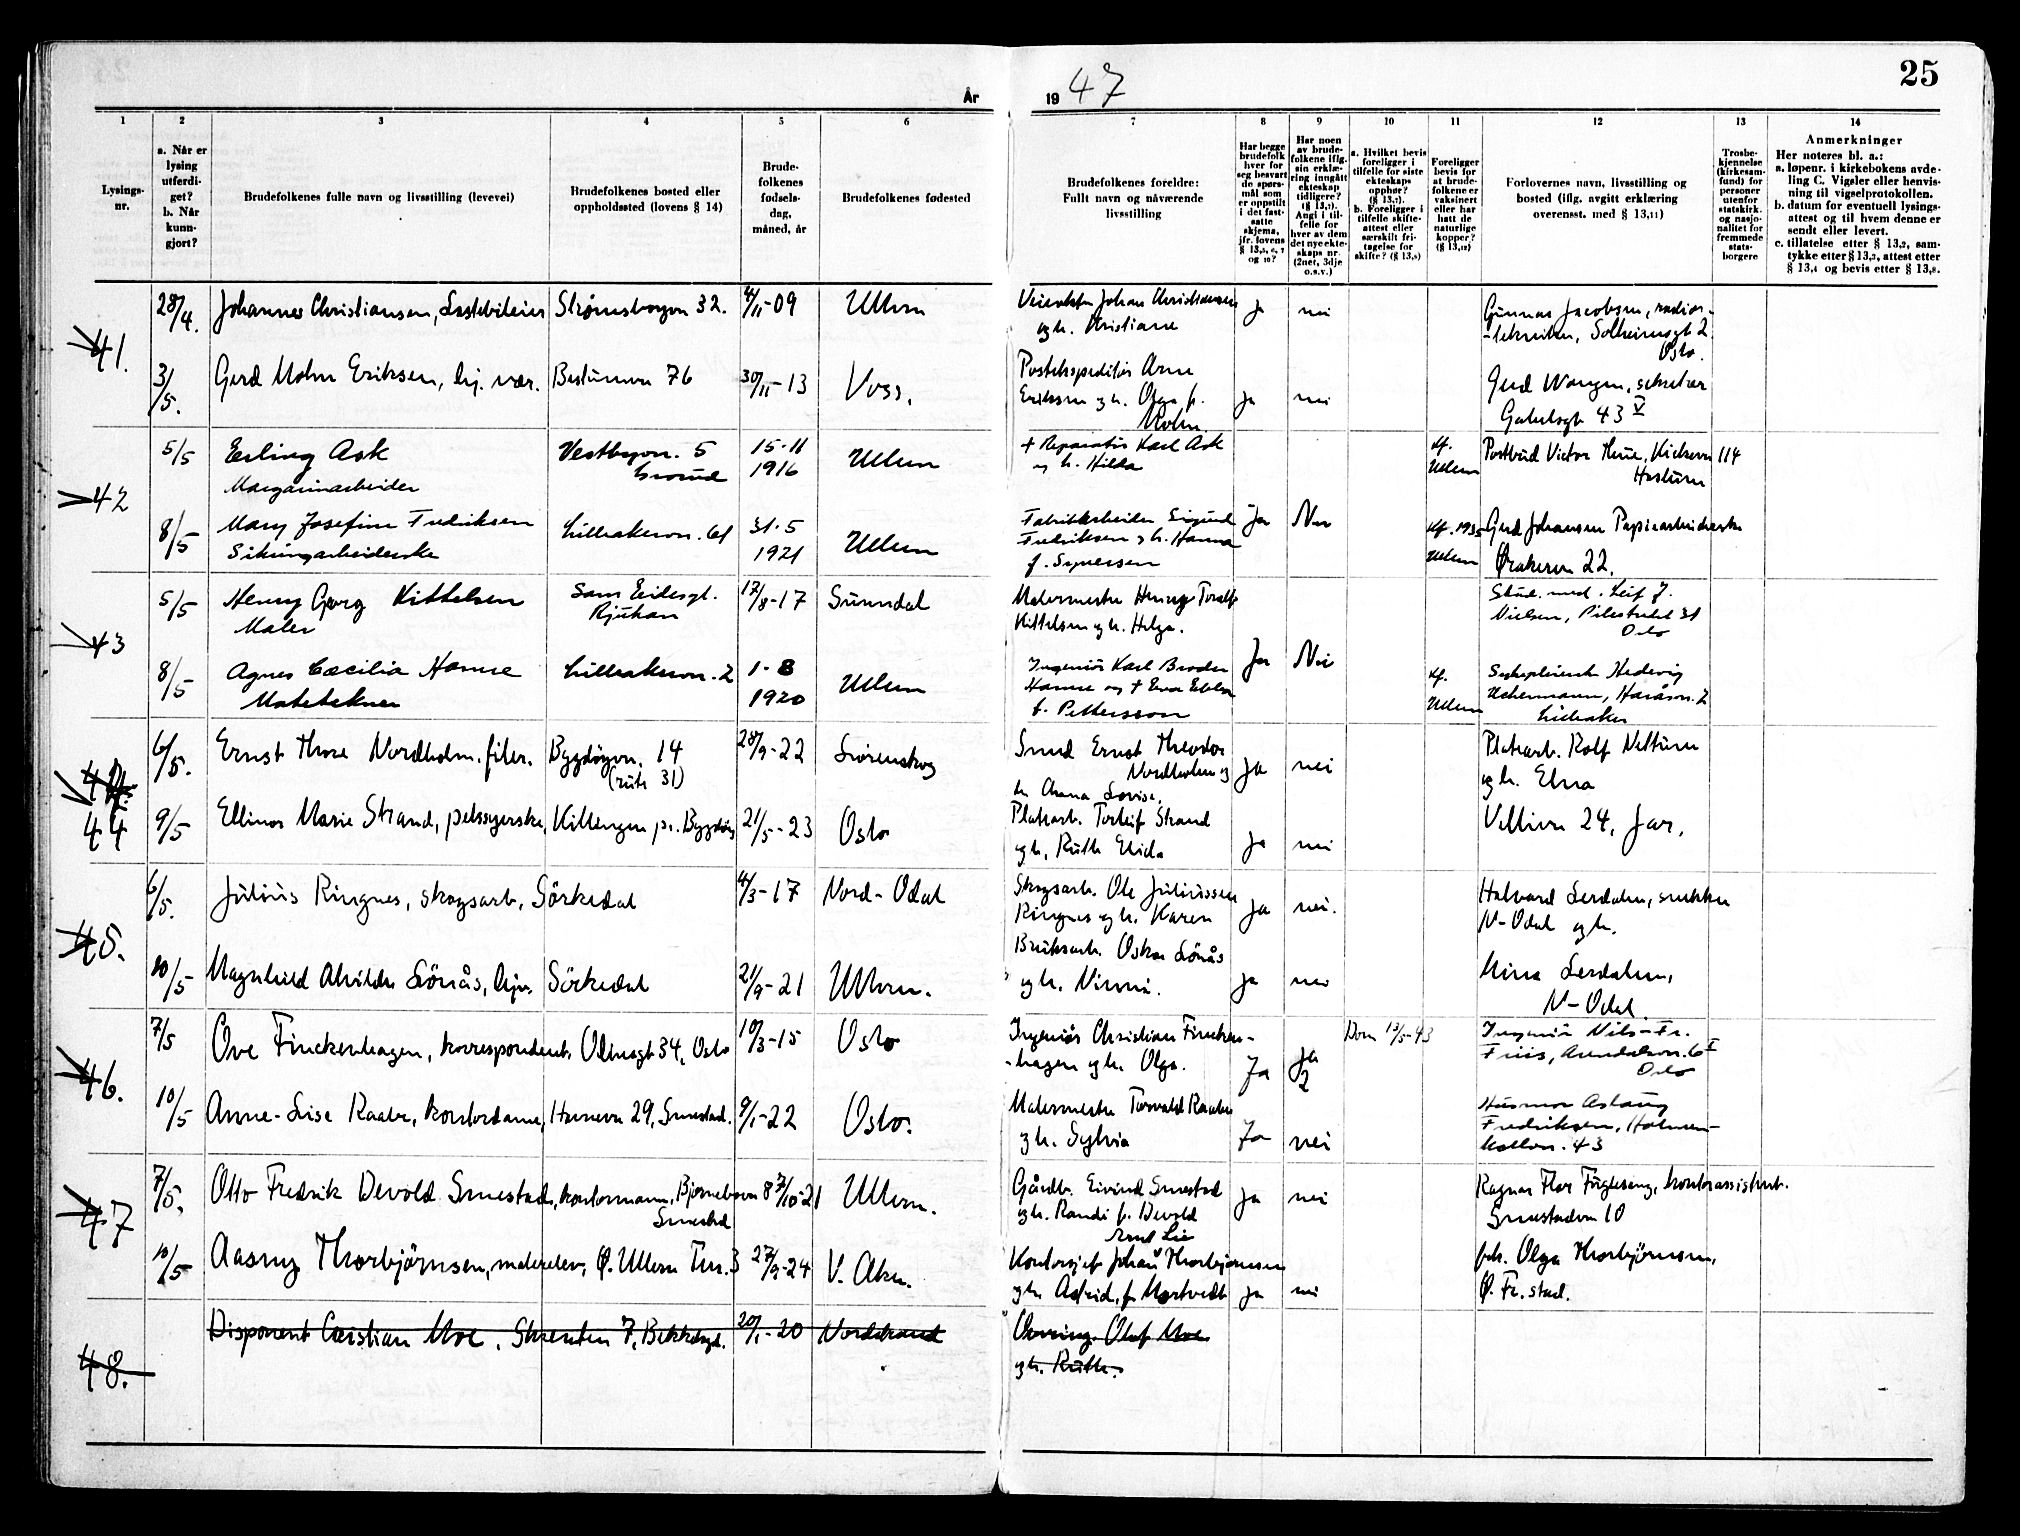 25
År
19 47
1 2 3 4 5 6 7 8 9 10 11 12 13 14
Lysings-
nr.
a. Når er
lysing
utferdi-
get?
b. Når
kunn-
gjort?
Brudefolkenes fulle navn og livsstilling (levevei)
Brudefolkenes bosted eller
oppholdssted (lovens § 14)
Brude-
folkenes
fødsels-
dag,
måned, år
Brudefolkenes fødested
Brudefolkenes foreldre:
Fullt navn og nåværende
livsstilling
Har begge
brudefolk
hver for
seg besvart
de spørs-
mål som
er oppstilt
i det fast-
satte
skjema,
jfr. lovens
§ 13,5, 6, 7
og 10?
Har noen
av brude-
folkene iflg.
sin erklæ-
ring inngått
ekteskap
tidligere?
(§ 13,7).
Angi i til-
felle for
hver av dem
det nye ekte-
skaps nr.
(2net, 3dje
o.s.v.)
a. Hvilket bevis
foreligger i
tilfelle for siste
ekteskaps
opphør?
(§ 13,7).
b. Foreligger i
tilfelle skifte-
attest eller
særskilt fri-
tagelse for
skifte? (§ 13,8)
Foreligger
bevis for
at brude-
folkene er
vaksinert
eller har
hatt de
naturlige
kopper?
(§ 13,12)
Forlovernes navn, livsstilling og
bosted (iflg. avgitt erklæring
overensst. med § 13,11)
Trosbe-
kjennelse
(kirkesam-
fund) for
personer
utenfor
statskirk.
og nasjo-
nalitet for
fremmede
stats-
borgere
Anmerkninger
Her noteres bl. a.:
a. løpenr. i kirkebokens avde-
ling C. Vigsler eller henvis-
ning til vigselprotokollen.
b. datum for eventuell lysings-
attest og til hvem denne er
sendt eller levert.
c. tillatelse etter § 13,2, sam-
tykke etter § 13,3, attest etter
§ 13,4 og bevis etter § 13,8.
41.
28/4. Johannes Christiansen, Lastebileier Strømsborgvn 32. 4/11-09 Ullern
Johan Christiansen
og h. Kristiane
Ja nei
Gunnar Jacobsen, radio-
-tekniker, Solheimsgt 2
Oslo.
3/5. Gerd Holm Eriksen, hj. vær. Bestumvn 76 30/11-13 Voss.
Postekspeditør Arne
Eriksen og h. Olga f.
Holm.
Ja nei
Gerd Wangen, sekretær
Gabelsgt 43 V
42
5/5 Erling Ask Vestbyvn. 5 15-11 Ullern
Margarinarbeider Grorud 1916
+ Reparatør Karl Ask
og h. Hilda
kf.
Ullern
Postbud Victor Thue, Kirkevn 114
Haslum
8/5 Mary Josefine Fredriksen Lilleakervn. 61 31-5 Ullern
1921
Fabrikkarbeider Sigurd
Fredriksen og h. Hanna
f. Syversen
Ja Nei
kf. 1935
Ullern
Gerd Johansen Papirarbeiderske
Ørakervn 22.
43
5/5 Henry Georg Kittelsen Sam Eidesgt. 17/8-17 Sunndal
Maler Rjukan
Malermester Henry Toralf
Kittelsen og h. Helga.
Stud. med. Leif J.
Nielsen, Pilestredet 31
Oslo
8/5 Agnes Cæcilia Hamre Lilleakervn. 2 1-8 Ullern
1920
Ingeniør Karl Broder
Hamre og + Eva Ebba
f. Pettersson
Ja Nei
kf.
Ullern
Sykepleiersk Hedevig
Uchermann, Haråsvn. 2
Lilleaker
44
6/5. Ernst Thore Nordholm. filer. Bygdøyvn. 14 28/9-22 Lørenskog
(rute 31)
Smed Ernst Theodor
Nordholm og
h. Anna Lovise.
Ja nei
Platearb. Rolf Nettum
og h. Elna
9/5 Ellinor Marie Strand, pelssyerske, Killingen pr. Bygdøy 21/5-23 Oslo
Platearb. Torleif Strand
og h. Ruth Elida
Ja nei
Vollsvn 24, Jar.
45.
6/5. Julius Ringnes, skogsarb. Sörkedal 4/3-17 Nord-Odal
Skogsarb. Ole Juliussen
Ringnes og h. Karen
Ja nei.
Halvard Lerdalen, snekker
N-Odal og h.
10/5 Magnhild Alvilde Lönås, Sörkedal 21/9-21 Ullern.
Bruksarb. Oskar Lönås
og h. Nimmi.
Ja nei
Mina Lerdalen,
N-Odal.
46.
7/5 Ove Finckenhagen, korrespondent, Odinsgt 34, Oslo 10/3-15 Oslo
Ingeniør Christian Fincken-
-hagen og h. Olga.
Ja Ja
2
Dom 13/5-43
Ingeniør Nils-Fr.
Friis, Arendalsvn. 6 I
Oslo
10/5 Anne-Lise Raabe, kontordame, Heimevn 29, Smestad. 9/1-22 Oslo.
Malermester Torvald Raabe
og h. Sylvia
Ja nei
Husmor Aslaug
Fredriksen, Holmen-
kollvn. 43
47
7/5. Otto Fredrik Devold Smestad, kontormann, Bjørnebovn 8 7/10-21 Ullern.
Smestad
Gårdbr. Eivind Smestad
og h. Randi f. Devold
Ja nei
Ragnar Thor Fuglesang, kontorassistent.
Smestadvn 10
10/5 Aasny Thorbjörnsen, malerelev, Ø. Ullern Terr. 3 27/9-24 V. Aker.
Kontorsjef Johan Thorbjörnsen
og h. Astrid, f. Mortvedt
Ja nei
frk. Olga Thorbjörnsen,
Ø. Fr.stad.
48.
Disponent Christian Moe. Skrenten 7, Bekkelagt. 20/1-20 Nordstrand
Olaf Moe
og h. Ruth.